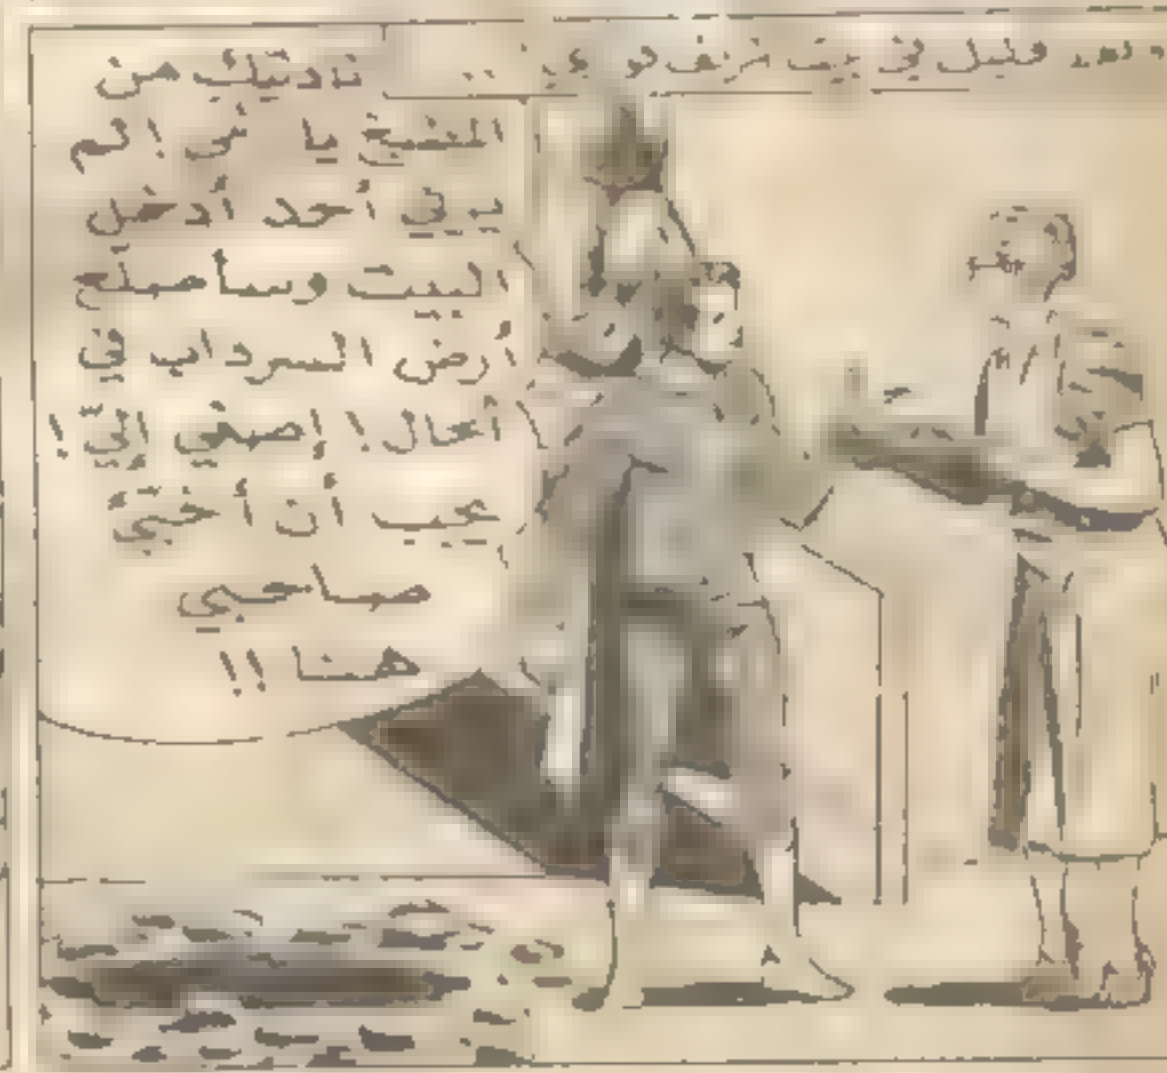 وبعد قليل في بيت
ناديتك من
المطبخ يا
يبق أحد أدخل
البيت وسأصلح
أرض السرداب في
أعال! إصغي إليّ!
يجب أن أخبّئ
صاحبي
هنا !!